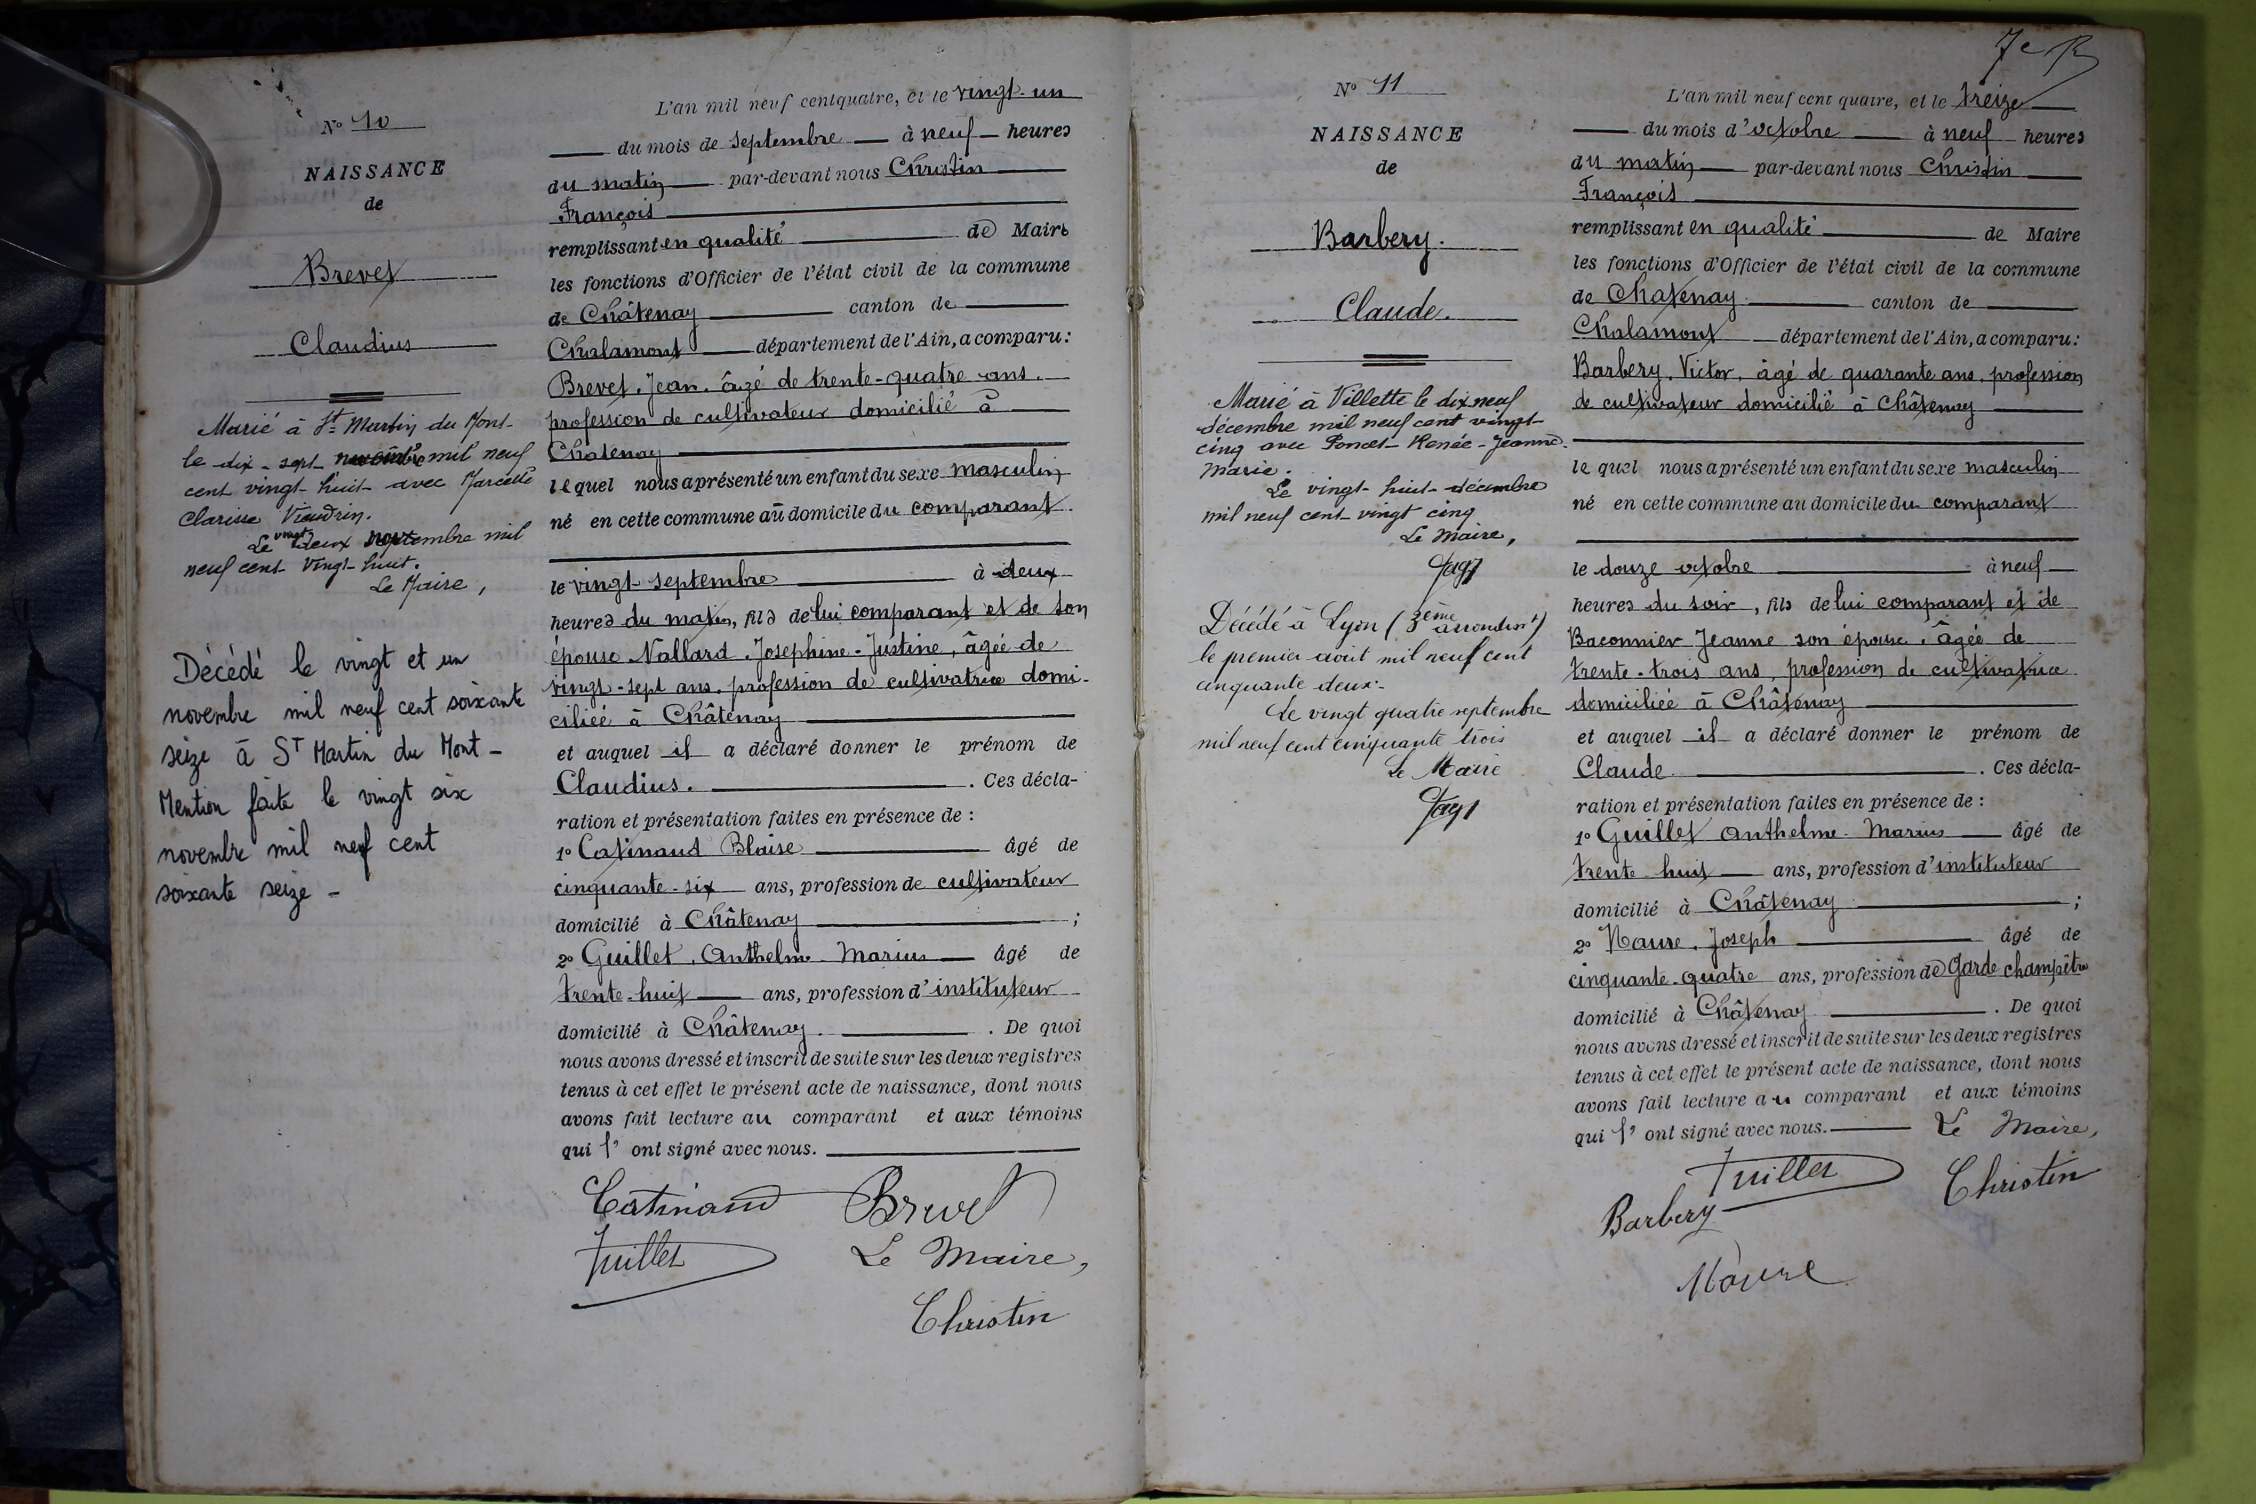 N° 10
NAISSANCE
de
Brevet
Claudius
Marié à St Martin du Mont
le dix-sept novembre mil neuf
cent vingt-huit avec Marcelle
Clarisse
Le vingt deux novembre mil
neuf cent vingt-huit.
Le Maire,
Décédé le vingt et un
novembre mil neuf cent soixante
seize à ST Martin du Mont -
Mention faite le vingt six
novembre mil neuf cent
soixante seize -
L'an mil neuf cent quatre, et le vingt-un
du mois de septembre à neuf heures
du matin par-devant nous Christin
François
remplissant en qualité de Maire
les fonctions d'Officier de l'état civil de la commune
de Châtenay canton de
Chalamont département de l'Ain, a comparu:
Brevet. Jean. âgé de trente-quatre ans.
profession de cultivateur domicilié à
Châtenay
lequel nous a présenté un enfant du sexe masculin
né en cette commune au domicile du comparant.
le vingt septembre à deux
heures du matin, fils de lui comparant et de son
épouse Nallard. Josephine-Justine, âgée de
vingt-sept ans. profession de cultivatrice domi-
ciliée à Châtenay
et auquel il a déclaré donner le prénom de
Claudius. . Ces décla-
ration et présentation faites en présence de :
1° Catinaud Blaise âgé de
cinquante-six ans, profession de cultivateur
domicilié à Châtenay ;
2° Guillet. Anthelme Marius âgé de
trente-huit ans, profession d'instituteur
domicilié à Châtenay. . De quoi
nous avons dressé et inscrit de suite sur les deux registres
tenus à cet effet le présent acte de naissance, dont nous
avons fait lecture au comparant et aux témoins
qui l' ont signé avec nous.
Catinaud Brevet
Guillet Le Maire,
Christin
7e R
N° 11
NAISSANCE
de
Barbery.
Claude.
Marié à Villette le dix neuf
décembre mil neuf cent vingt-
cinq avec Poncet Renée-Jeanne
Marie.
Le vingt-huit décembre
mil neuf cent vingt cinq
Le Maire,
Décédé à Lyon (3ème arrondisst)
le premier août mil neuf cent
cinquante deux.-
Le vingt quatre septembre
mil neuf cent cinquante trois
Le Maire
L'an mil neuf cent quatre, et le treize
du mois d'octobre à neuf heures
du matin par-devant nous Christin
François
remplissant en qualité de Maire
les fonctions d'Officier de l'état civil de la commune
de Chatenay canton de
Chalamont département de l'Ain, a comparu:
Barbery. Victor, âgé de quarante ans, profession
de cultivateur domicilié à Châtenay
lequel nous a présenté un enfant du sexe masculin
né en cette commune au domicile du comparant
le douze octobre à neuf
heures du soir, fils de lui comparant et de
Baconnier Jeanne son épouse. âgée de
trente-trois ans, profession de cultivatrice
domiciliée à Châtenay
et auquel il a déclaré donner le prénom de
Claude . Ces décla-
ration et présentation faites en présence de :
1° Guillet Anthelme Marius âgé de
trente huit ans, profession d'instituteur
domicilié à Châtenay ;
2° Maure. Joseph âgé de
cinquante-quatre ans, profession de Garde champêtre
domicilié à Châtenay . De quoi
nous avons dressé et inscrit de suite sur les deux registres
tenus à cet effet le présent acte de naissance, dont nous
avons fait lecture au comparant et aux témoins
qui l' ont signé avec nous. Le Maire,
Guillet Christin
Barbery
Maure